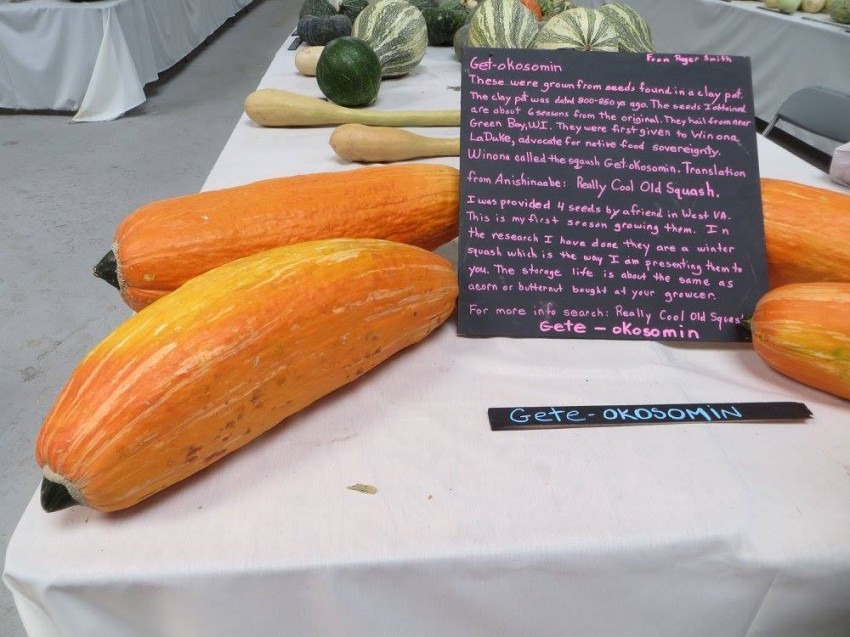 Get-okosomin From Roger Smith
These were grown from seeds found in a clay pot.
The clay pot was dated 800-850 ys ago. The seeds I obtained
are about 6 seasons from the original. They hail from near
Green Bay, WI. They were first given to Winona
LaDuke, advocate for native food sovereignty.
Winona called the squash Get-okosomin. Translation
from Anishinaabe: Really Cool Old Squash.
I was provided 4 seeds by a friend in West VA.
This is my first season growing them. In
the research I have done they are a winter
squash which is the way I am presenting them to
you. The storage life is about the same as
acorn or butternut bought at your growcer.
For more info search: Really Cool Old Squas
Gete - okosomin
Gete-OKOSOMIN